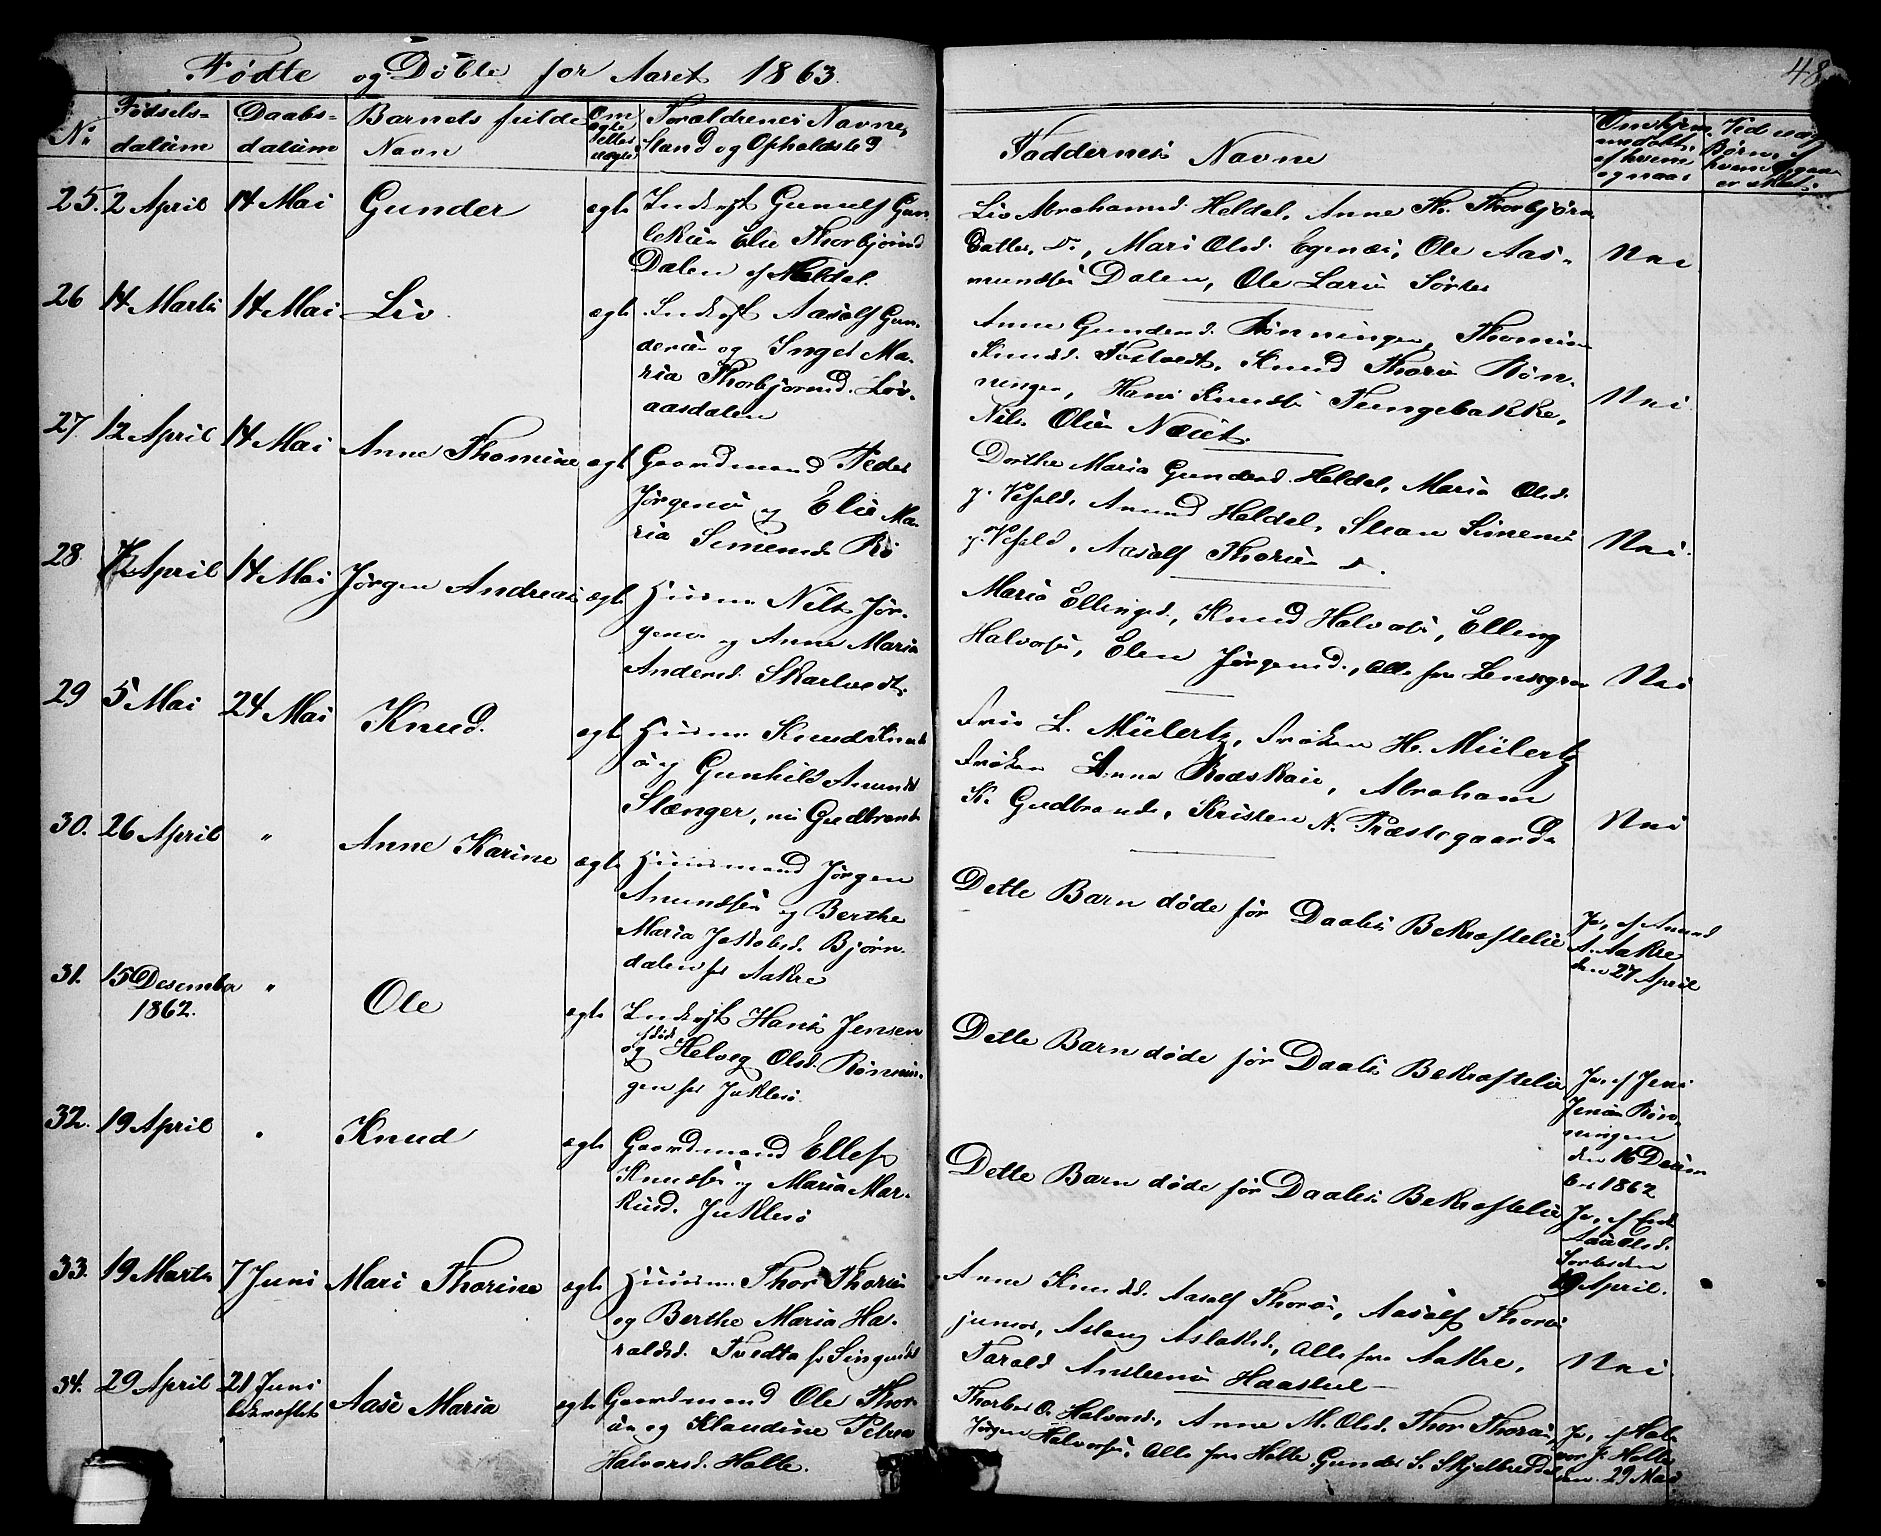 Fødte og Døbte for Aaret 1863.
48
No
Fødsels-
datum
Daabs-
datum
Barnets fulde
Navn
Om
ægte
eller
uægte
Forældrenes Navne,
Stand og Opholdsted
Faddernes Navne
25. 2 April 14 Mai Gunder ægte Inderst Gunulf Gun-
Elie Thorbjørnsd
Dalen
Liv Abrahamsd. Heldal, Anne K. Thorbjørns
Datter, Do, Mari Olsd. Egenæs, Ole Aas-
mundsen Dalen, Ole Larsen
Nei
26 14 Marts 14 Mai Liv. ægte Inderst Aasolf Gun-
dersen og Inger Ma-
ria Thorbjørnsd. Løv-
aasdalen
Anne Gundersd. Rønningen, Thomine
Knudsd. Tostvedt, Knud Thorsen Røn-
ningen, Hans Knudsen Tungebakke,
Nils Olsen Næset.
Nei
27. 12 April 14 Mai Anne Thomine ægte Gaardmand Peder
Jørgensen og Elie Ma-
ria Simensd. Bø
Dorthe Maria Gundersd. Heldal, Maria Olsd.
Anund Heldal, Stean Simensen
Aasolf Thorsen Do.
Nei.
28. 12 April 14 Mai Jørgen Andreas ægte Huusm. Nils Jør-
gensen og Anne Maria
Andersd. Skarvedt
Maria Ellingsd., Knud Halvorsen, Elling
Halvorsen, Elen Jørgensd., Alle fra
Nei
29 5 Mai 24 Mai Knud. ægte Huusm. Knud Knuds
og Gunhild Anundsd
Stænger, nu Gudbrands
Frue L. Mülertz, Frøken H. Mülertz
Frøken Anna Rodskow, Abraham
K. Gudbrands, Kristen N. Præstegaarden
Nei
30. 26 April " Anne Karine ægte Huusmand Jørgen
Anundsen og Berthe
Maria Jakobsd. Bjørn-
dalen fr Aakre
Dette Barn døde før Daabens Bekræftelse
Ja, af Anund
A. Aakre
den 27 April
31. 15 Desember " Ole ægte Inderst Hans Jensen
1862.
og Helvig Olsd. Rønnin-
gen fr Juklesø.
Dette Barn døde før Daabens Bekræftelse
Ja, af Jens
Jensen Røn-
ningen
den 16 Decem
ber 1862
32. 19 April . Knud ægte Gaardmand Ellef
Knudsen og Maria Mar-
kusd. Juklesø
Dette Barn døde før Daabens Bekræftelse
Ja, af
den
19 April.
33. 19 Marts 7 Juni Mari Thorine ægte Huusm. Thor Thorsen
og Berthe Maria Ha-
raldsd. Tvedten fr
Anne Knudsd. Aasolf Thorsen, Aasolf Thorsen
junior, Aslaug Aslaksd., Alle fra Aakre,
Tarald Ansteensen Haastul
Nei.
34. 29 April 21 Juni Aase Maria ægte Gaardmand Ole Thor-
bekræftet
sen og Klaudine Petrea
Halvorsd. Holte.
Thorbor O. Halvorsd., Anne M. Olsd. Thor Thorsen,
Jørgen Halvorsen, Alle fra Holte Gunder S. Skjelbredd
Ja, af Hal-
vor J. Holte
den 29 Mai